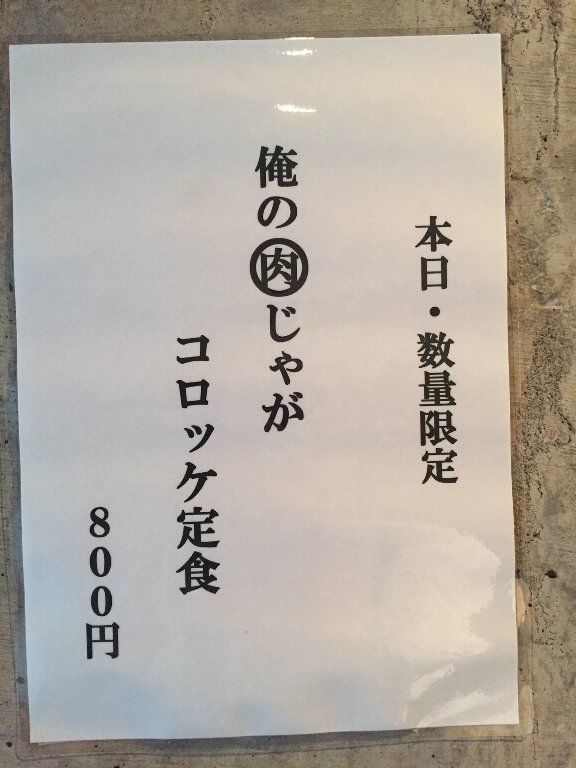 本日・数量限定
俺の㊊じゃが
コロッケ定食
800円